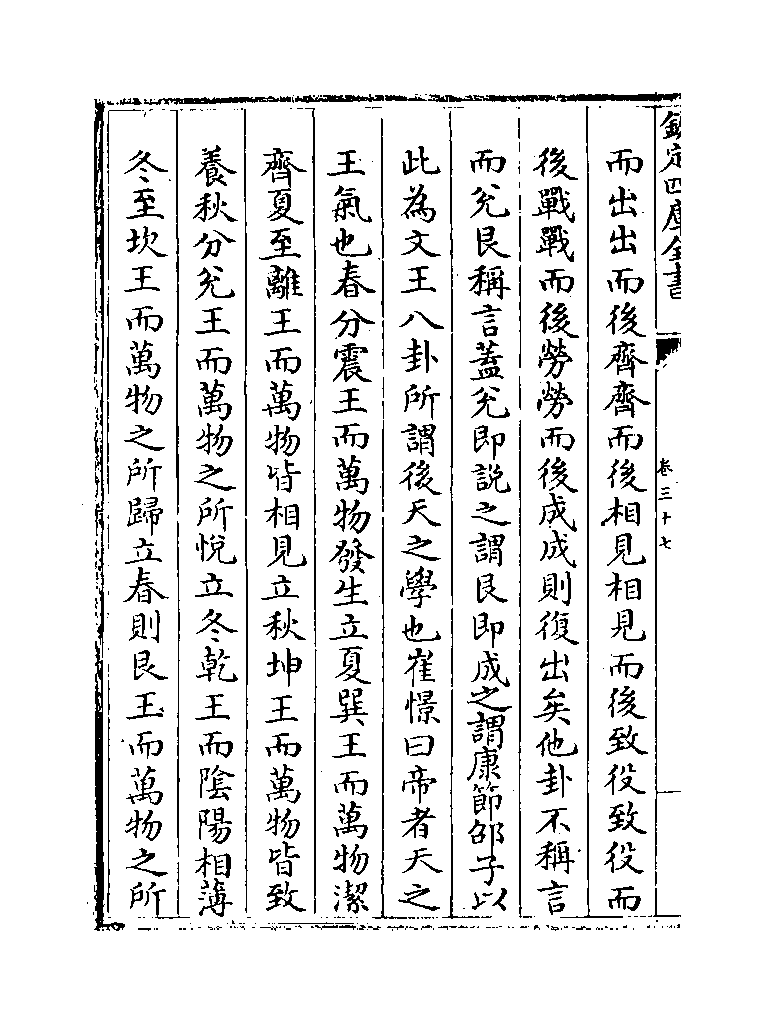 欽定四庫全書
卷三十七
而出出而後齊齊而後相見相見而後致役致役而
後戰戰而後勞勞而後成成則復出矣他卦不稱言
而兊艮稱言蓋兊即説之謂艮即成之謂康節邵子以
此為文王八卦所謂後天之學也崔憬曰帝者天之
王氣也春分震王而萬物發生立夏巽王而萬物潔
齊夏至離王而萬物皆相見立秋坤王而萬物皆致
養秋分兊王而萬物之所悅立冬乾王而陰陽相薄
冬至坎王而萬物之所歸立春則艮王而萬物之所